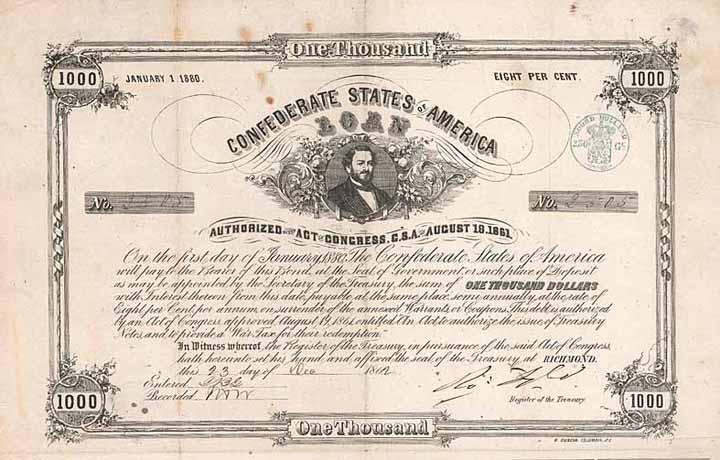 One Thousand
1000
JANUARY 1 1880.
EIGHT PER CENT.
1000
CONFEDERATE STATES OF AMERICA
LOAN
NOORD HOLLAND
250 Cs
No. 2505
No. 2505
AUTHORIZED BY THE ACT OF CONGRESS, C.S.A. OF AUGUST 19, 1861.
On the first day of January 1880, The Confederate States of America
will pay to the Bearer of this Bond, at the Seat of Government, or such place of Deposit
as may be appointed by the Secretary of the Treasury, the sum of ONE THOUSAND DOLLARS
with Interest thereon from this date, payable at the same place semi annually, at the rate of
Eight per Cent per annum, on surrender of the annexed Warrants or Coupons. This debt is authorized
by an Act of Congress approved August 19, 1861, entitled An Act to authorize the issue of Treasury
Notes, and to provide a War Tax for their redemption.
In Witness whereof, the Register of the Treasury, in pursuance of the said Act of Congress,
hath hereunto set his hand, and affixed the seal of the Treasury, at RICHMOND.
this 23 day of Dec 1862
Entered
Recorded
Register of the Treasury.
1000
One Thousand
1000
COLUMBIA, S.C.